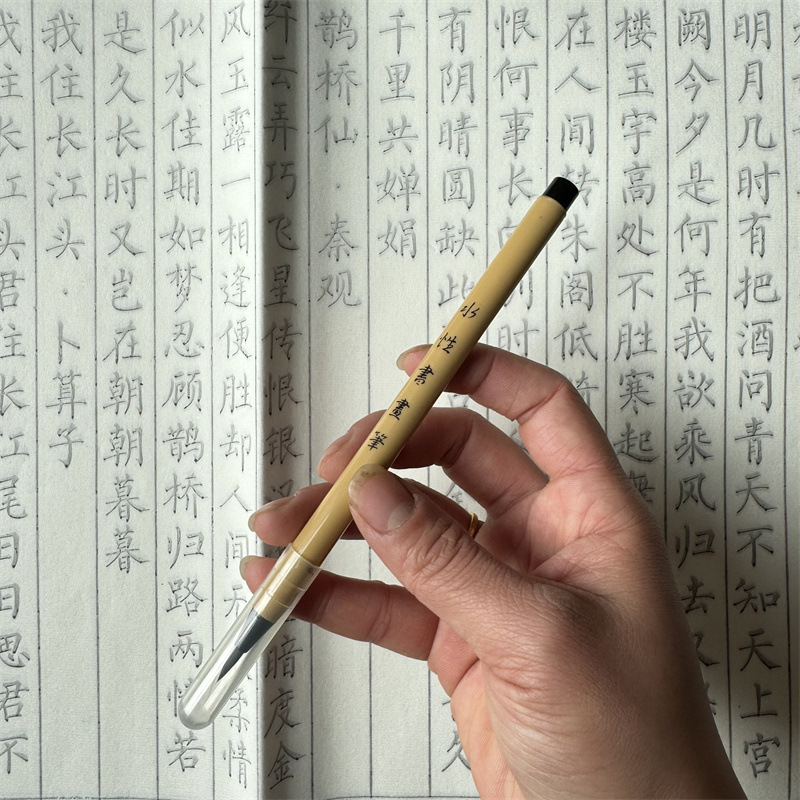 明月几时有把酒问青天不知天上宫
阙今夕是何年我欲乘风归去又
楼玉宇高处不胜寒起舞
在人间转朱阁低绮
恨何事长向别时
有阴晴圆缺此
千里共婵娟
鹊桥仙·秦观
纤云弄巧飞星传恨银汉暗度金
风玉露一相逢便胜却人间无柔情
似水佳期如梦忍顾鹊桥归路两情若
是久长时又岂在朝朝暮暮
我住长江头·卜算子
我住长江头君住长江尾日日思君不
水性書畫筆